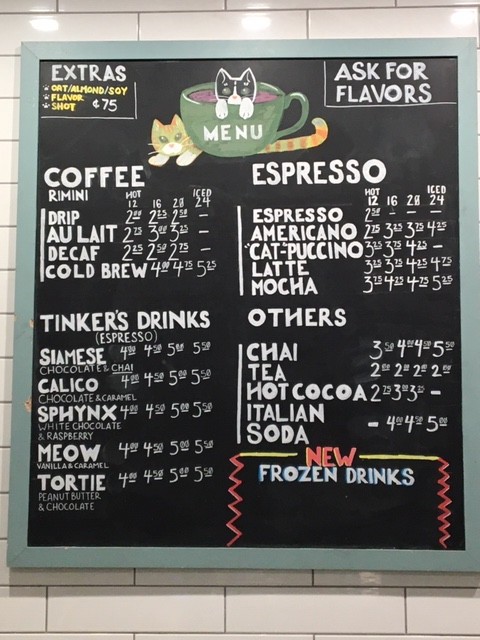 EXTRAS
OAT/ALMOND/SOY
FLAVOR
SHOT ¢75
MENU
ASK FOR
FLAVORS
COFFEE
RIMINI HOT 12 16 20 ICED 24
DRIP 2⁰⁰ 2²⁵ 2⁵⁰ –
AU LAIT 2⁷⁵ 3⁰⁰ 3²⁵ –
DECAF 2²⁵ 2⁵⁰ 2⁷⁵ –
COLD BREW 4⁰⁰ 4⁷⁵ 5²⁵
ESPRESSO
HOT 12 16 20 ICED 24
ESPRESSO 2⁵⁰ – – –
AMERICANO 2⁷⁵ 3²⁵ 3⁷⁵ 4²⁵
"CAT-PUCCINO 3²⁵ 3⁷⁵ 4²⁵ –
LATTE 3²⁵ 3⁷⁵ 4²⁵ 4⁷⁵
MOCHA 3⁷⁵ 4²⁵ 4⁷⁵ 5²⁵
TINKER'S DRINKS
(ESPRESSO)
SIAMESE 4⁰⁰ 4⁵⁰ 5⁰⁰ 5⁵⁰
CHOCOLATE & CHAI
CALICO 4⁰⁰ 4⁵⁰ 5⁰⁰ 5⁵⁰
CHOCOLATE & CARAMEL
SPHYNX 4⁰⁰ 4⁵⁰ 5⁰⁰ 5⁵⁰
WHITE CHOCOLATE
& RASPBERRY
MEOW 4⁰⁰ 4⁵⁰ 5⁰⁰ 5⁵⁰
VANILLA & CARAMEL
TORTIE 4⁰⁰ 4⁵⁰ 5⁰⁰ 5⁵⁰
PEANUT BUTTER
& CHOCOLATE
OTHERS
CHAI 3⁵⁰ 4⁰⁰ 4⁵⁰ 5⁵⁰
TEA 2⁰⁰ 2⁰⁰ 2⁰⁰ 2⁰⁰
HOT COCOA 2⁷⁵ 3⁰⁰ 3²⁵ –
ITALIAN
SODA – 4⁰⁰ 4⁵⁰ 5⁰⁰
NEW
FROZEN DRINKS